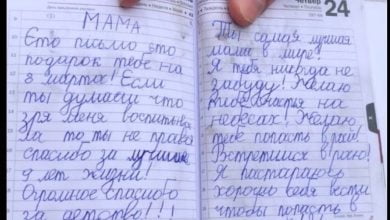 МАМА
Єто письмо это
подарок тебе на
8 марта! Если
ты думаеш что
зря меня воспитывала
то ты не права
спасибо за лучшие
9 лет жизни!
Огромное спасибо
за детство!!!
четвер
24
Ты самая лучшая
мама в мире!
Я тебя никогда не
забуду! Желаю
тебе счастья на
небесах! Желаю
тебе попасть в рай!
Встретимся в раю!
Я постараюсь
хорошо себя вести
чтобы попасть в